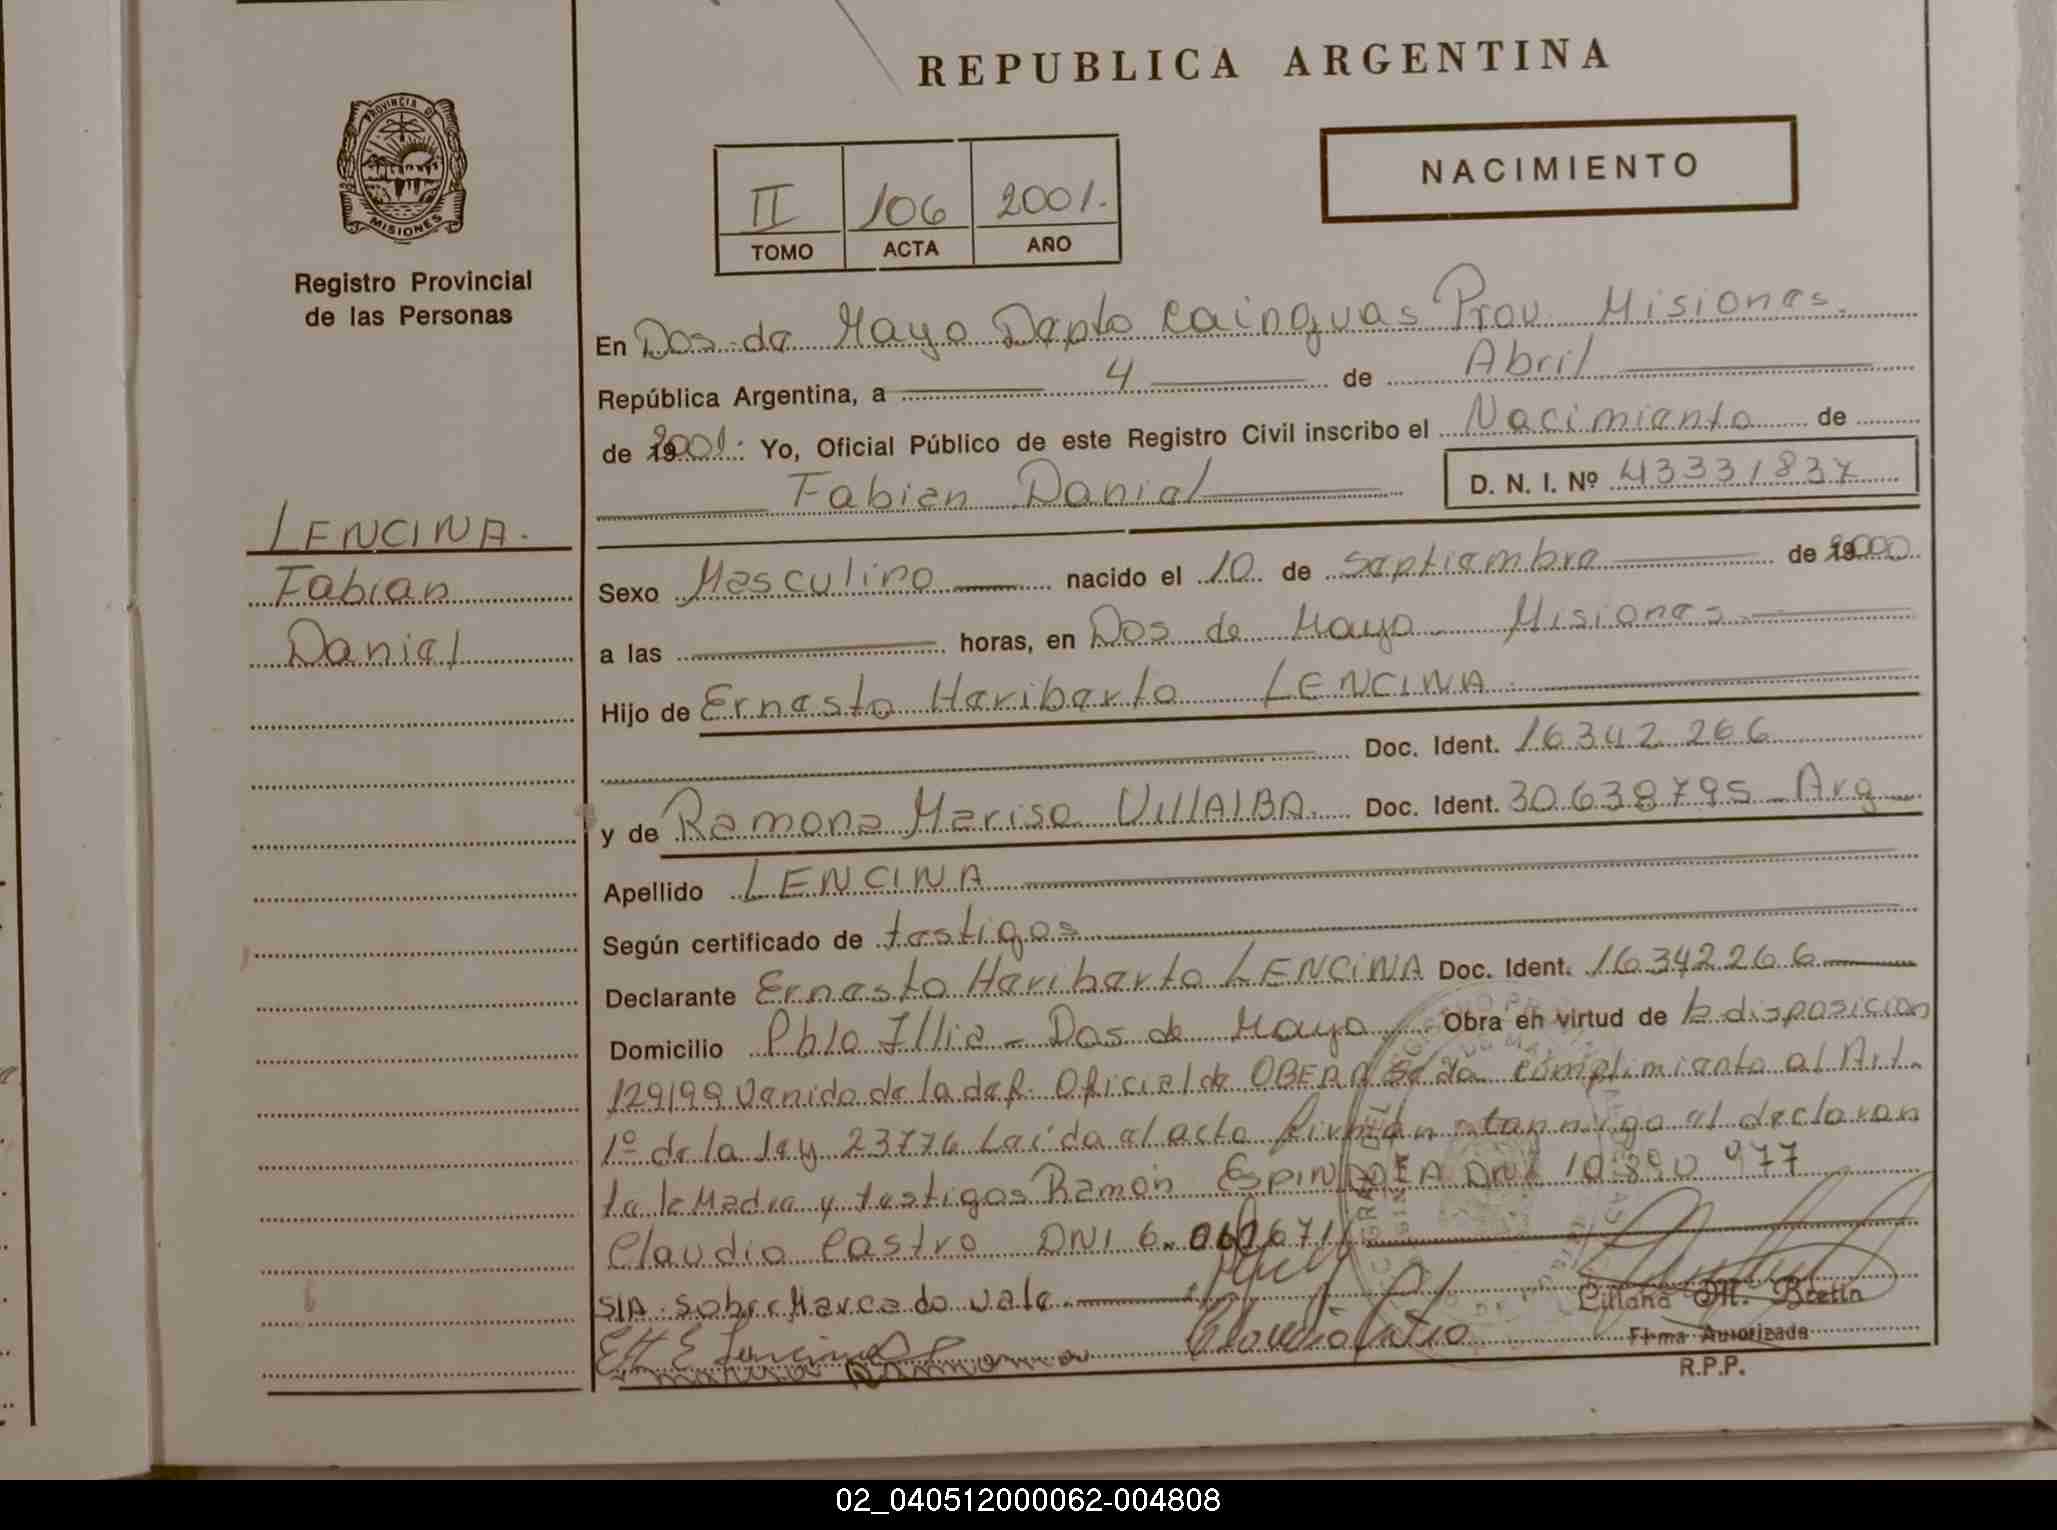 REPUBLICA ARGENTINA
PROVINCIA DE
MISIONES
Registro Provincial
de las Personas
II 106 2001.
TOMO ACTA AÑO
NACIMIENTO
LENCINA.
Fabian
Daniel
En Dos de Mayo Depto Cainguas Prov. Misiones.
República Argentina, a 4 de Abril
de 2001. Yo, Oficial Público de este Registro Civil inscribo el Nacimiento de
Fabian Daniel D. N. I. Nº 43331837
Sexo Masculino nacido el 10 de septiembre de 2000
a las horas, en Dos de Mayo Misiones
Hijo de Ernesto Heriberto LENCINA
Doc. Ident. 16342266
y de Ramona Marisa VIllAlBA. Doc. Ident. 30638795 - Arg
Apellido LENCINA
Según certificado de testigos
Declarante Ernesto Heriberto LENCINA Doc. Ident. 16342266
Domicilio Pblo Illia - Dos de Mayo Obra en virtud de la disposicion
129/99 Venido de la def. Oficial de OBERA Se da cumplimiento al Art.
1º de la ley 23776 Leida el acto firman conmigo el declaran
te la Madre y testigos Ramon ESPINDOLA DNI 10.890 977
Claudio Castro DNI 6. 060671
S/A. Sobre Marcado vale
E H E Lencina
Ramona
Claudio Castro
Liliana M. Bretin
Firma Autorizada
R.P.P.
02_040512000062-004808